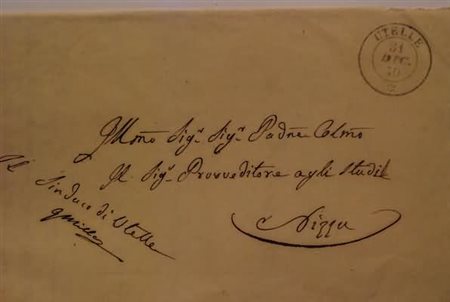 UTELLE
31
DEC.
Illmo Sigr Sigr Padne Colmo
Il Sigr Provveditore agli Studi
Nizza
Il Sindaco di Utelle